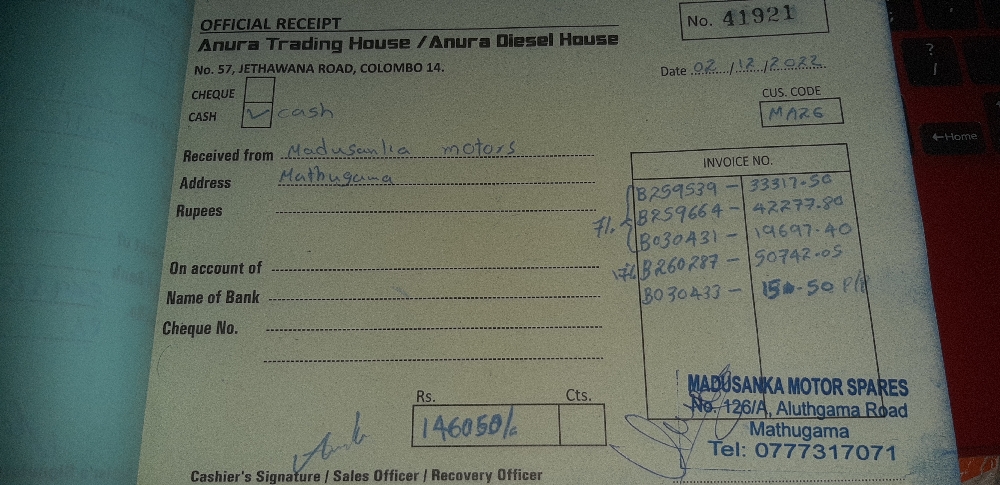 OFFICIAL RECEIPT
No. 41921
Anura Trading House / Anura Diesel House
No. 57, JETHAWANA ROAD, COLOMBO 14.
Date 02/12/2022
CHEQUE
CUS. CODE
CASH ✓ cash
MA26
Received from Madusanka motors
INVOICE NO.
Address Mathugama
B259539 - 33317.50
Rupees
B259664 - 42277.80
B030431 - 19697.40
On account of
B260287 - 50742.05
Name of Bank
B030433 - P/P
Cheque No.
Rs. Cts.
146050/-
MADUSANKA MOTOR SPARES
No. 126/A, Aluthgama Road
Mathugama
Tel: 0777317071
Cashier's Signature / Sales Officer / Recovery Officer
? /
←Home